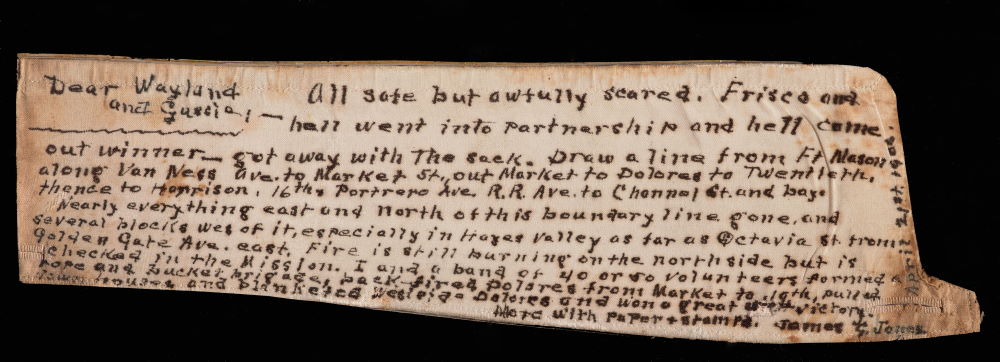 Dear Wayland
and Gussie, —
All safe but awfully scared. Frisco and
hell went into partnership and hell came
out winner — got away with The sack. Draw a line from Ft Mason
along Van Ness Ave. to Market St., out Market to Dolores to Twentieth,
thence to Harrison, 16th Portrero Ave. R.R. Ave. to Channel St. and bay.
Nearly everything east and north of this boundary line gone, and
several blocks wes of it, especially in Hayes Valley as far as Octavia St. from
Golden Gate Ave. east. Fire is still burning on the north side but is
checked in the Mission. I and a band of 40 or 50 volunteers formed a
rope and bucket brigade, back-fired Dolores from Market to 19th, pulled
down houses and blanketed westside Dolores and won a great victory.
More with paper + stamps. James G. Jones